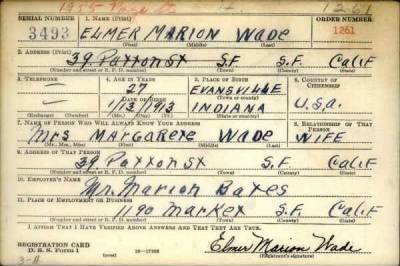 1955 St 1261
SERIAL NUMBER 1. NAME (Print) ORDER NUMBER
3493 ELMER MARION WADE 1261
(First) (Middle) (Last)
2. ADDRESS (Print)
39 Paxton St S.F. S.F. Calif
(Number and street or R. F. D. number) (Town) (County) (State)
3. TELEPHONE 4. AGE IN YEARS 5. PLACE OF BIRTH 6. COUNTRY OF CITIZENSHIP
— 27 EVANSVILLE
DATE OF BIRTH (Town or county)
— 1/3/1913 INDIANA U.S.A.
(Exchange) (Number) (Mo.) (Day) (Yr.) (State or country)
7. NAME OF PERSON WHO WILL ALWAYS KNOW YOUR ADDRESS 8. RELATIONSHIP OF THAT PERSON
Mrs Margarete Wade WIFE
(Mr., Mrs., Miss) (First) (Middle) (Last)
9. ADDRESS OF THAT PERSON
39 Paxton St S.F. Calif
(Number and street or R. F. D. number) (Town) (County) (State)
10. EMPLOYER'S NAME
Mr. Marion Bates
11. PLACE OF EMPLOYMENT OR BUSINESS
1190 Market S.F. Calif
(Number and street or R. F. D. number) (Town) (County) (State)
I AFFIRM THAT I HAVE VERIFIED ABOVE ANSWERS AND THAT THEY ARE TRUE.
REGISTRATION CARD
D. S. S. Form 1 Elmer Marion Wade
(Registrant's signature)
3-A